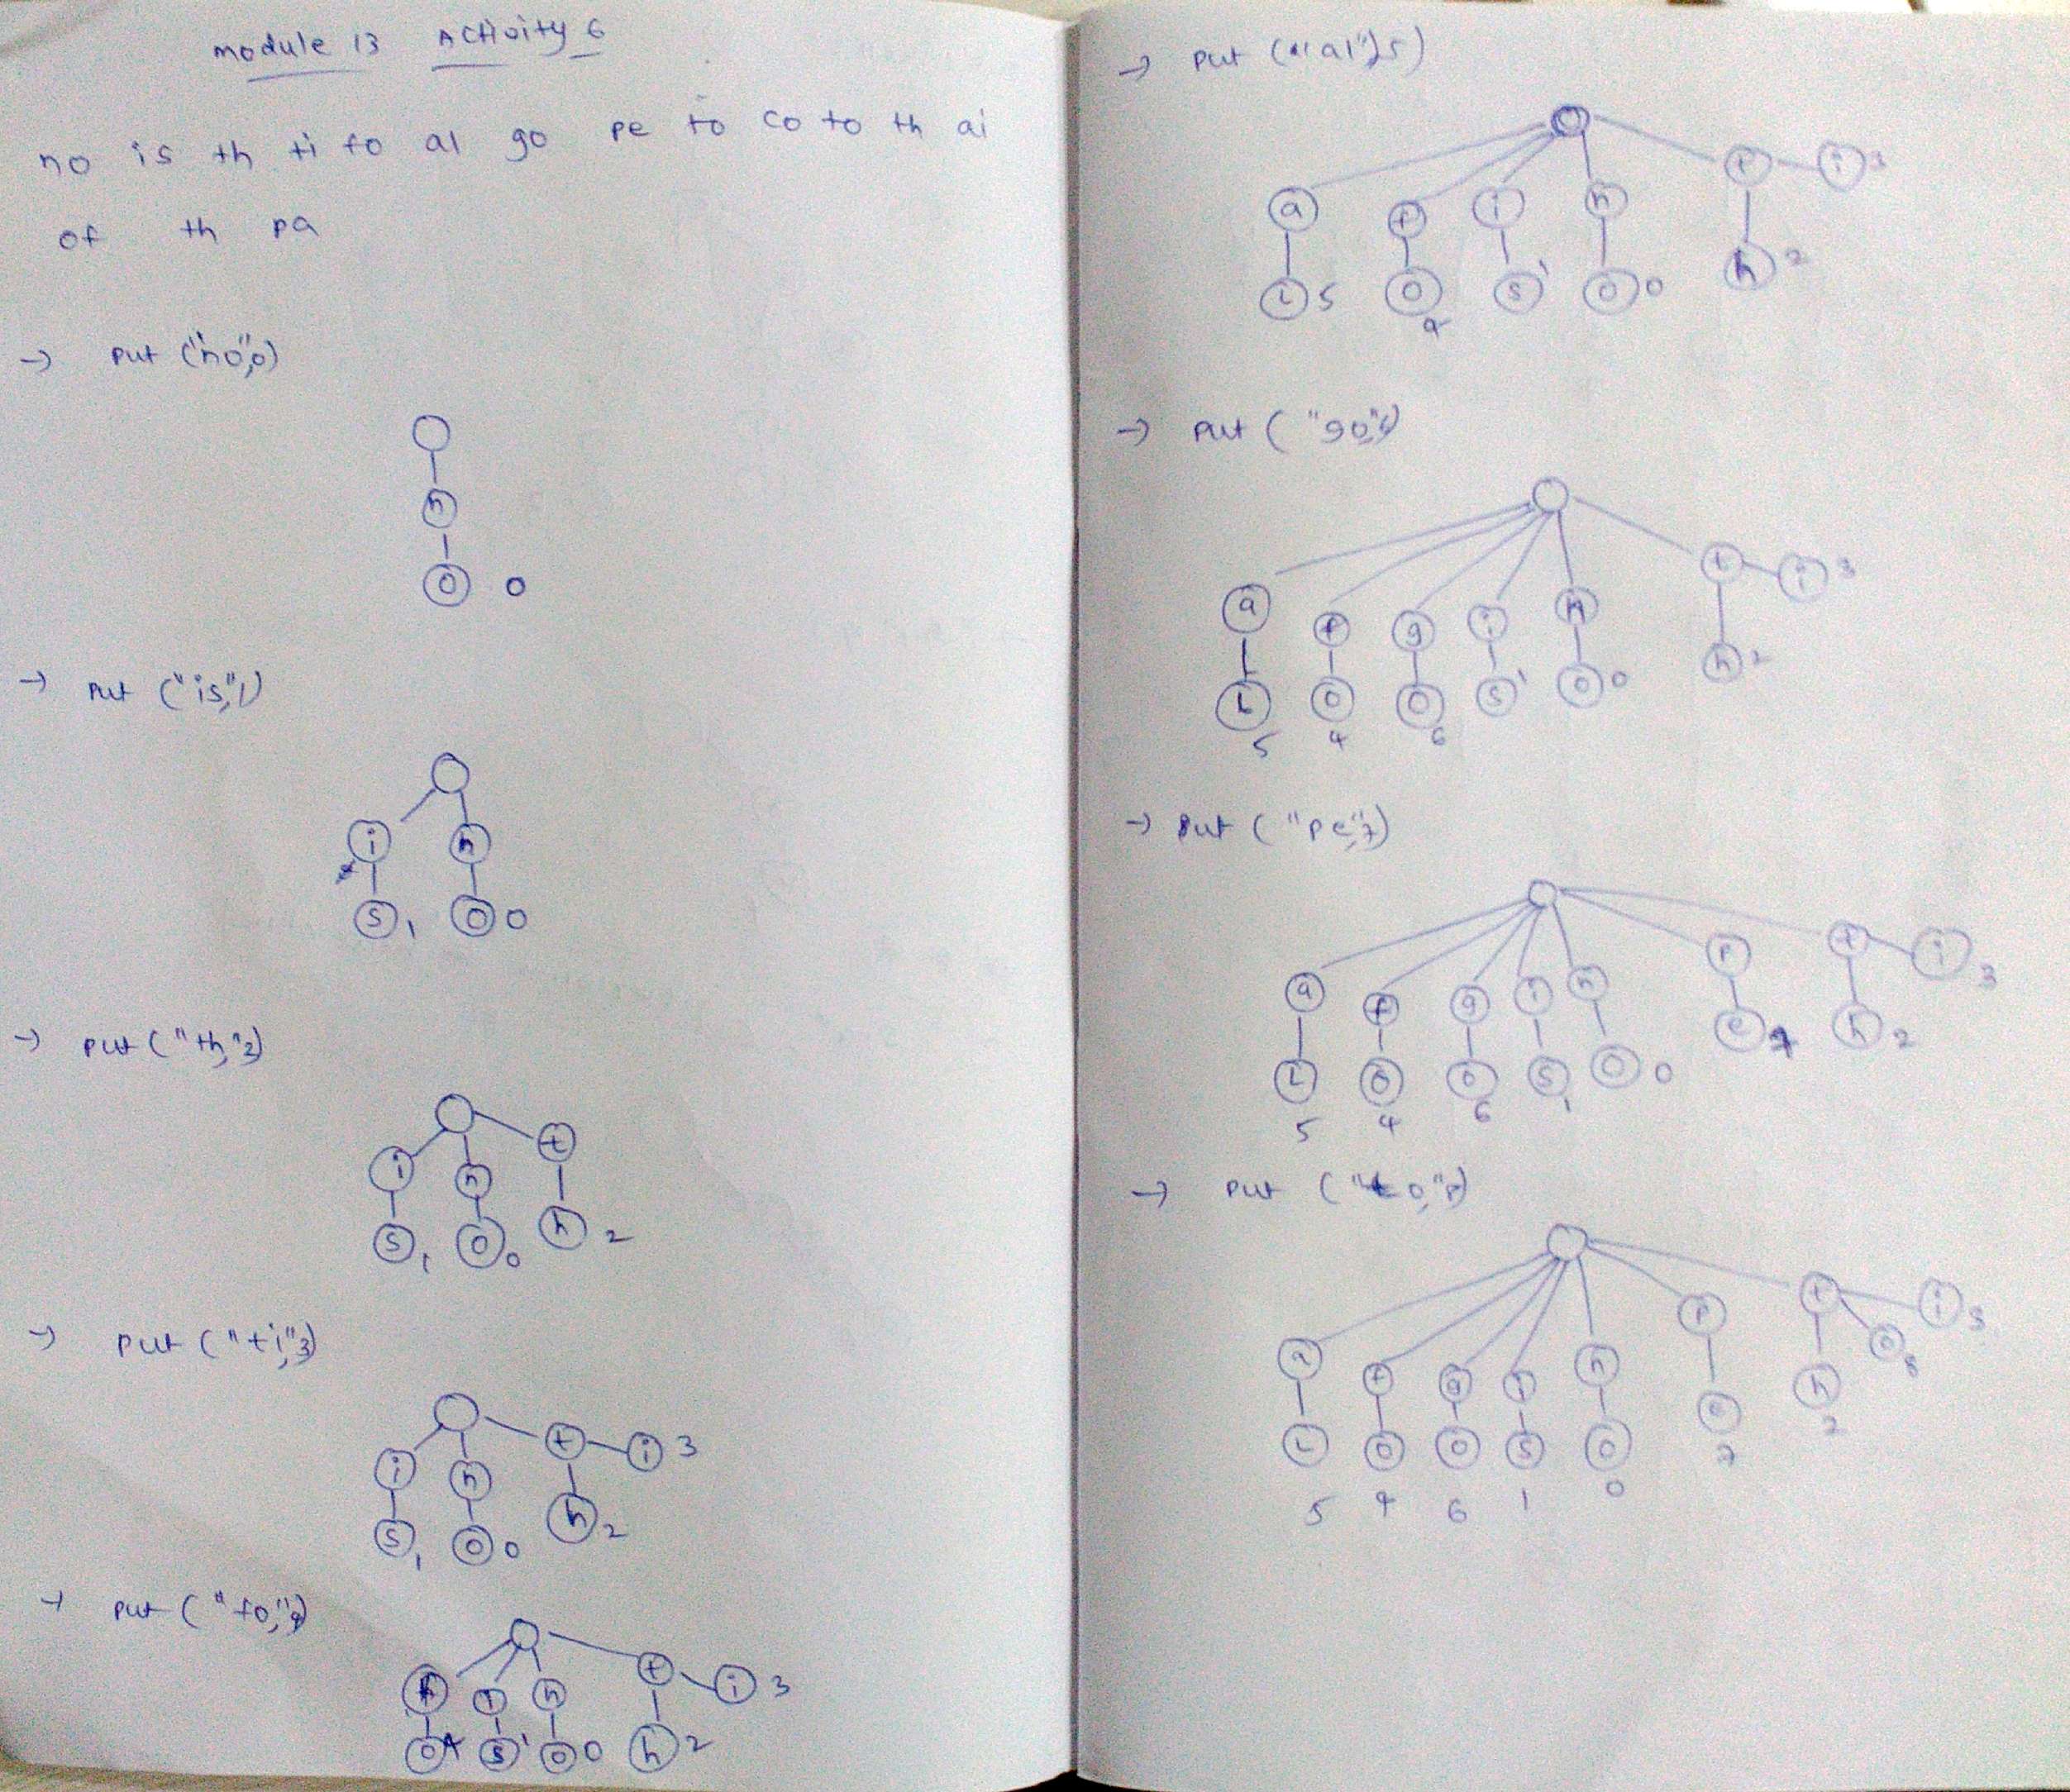 module 13 Activity 6
no is th ti fo al go pe to co to th ai
of th pa
→ put ("no",0)
n
o 0
→ put ("is",1)
i n
s 1 o 0
→ put ("th",2)
i n t
s 1 o 0 h 2
→ put ("ti",3)
i n t i 3
s 1 o 0 h 2
→ put ("fo",4)
f i n t i 3
o 4 s 1 o 0 h 2
→ put ("al",5)
a f i n t i 3
L 5 o 4 s 1 o 0 h 2
→ put ("go",6)
a f g i n t i 3
L o o s 1 o 0 h 2
5 4 6
→ put ("pe",7)
a f g i n p t i 3
L o o s o 0 e 7 h 2
5 4 6 1
→ put ("to",8)
a f g i n p t o 8 i 3
L o o s o e h
5 4 6 1 0 7 2